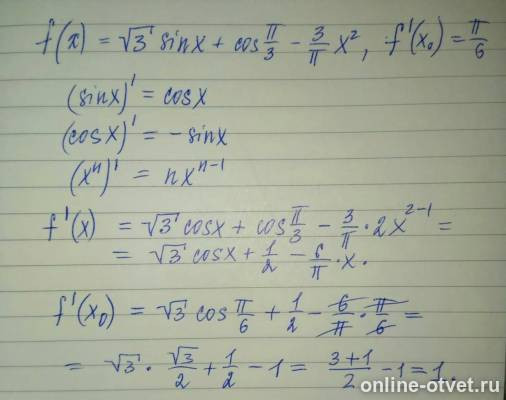 f(x) = √3 sinx + cos π/3 − 3/π x², f'(x₀) = π/6
(sinx)' = cosx
(cosx)' = −sinx
(xⁿ)' = nxⁿ⁻¹
f'(x) = √3 cosx + cos π/3 − 3/π · 2x²⁻¹ =
= √3 cosx + 1/2 − 6/π · x.
f'(x₀) = √3 cos π/6 + 1/2 − 6/π · π/6 =
= √3 · √3/2 + 1/2 − 1 = 3+1/2 − 1 = 1.
online-otvet.ru